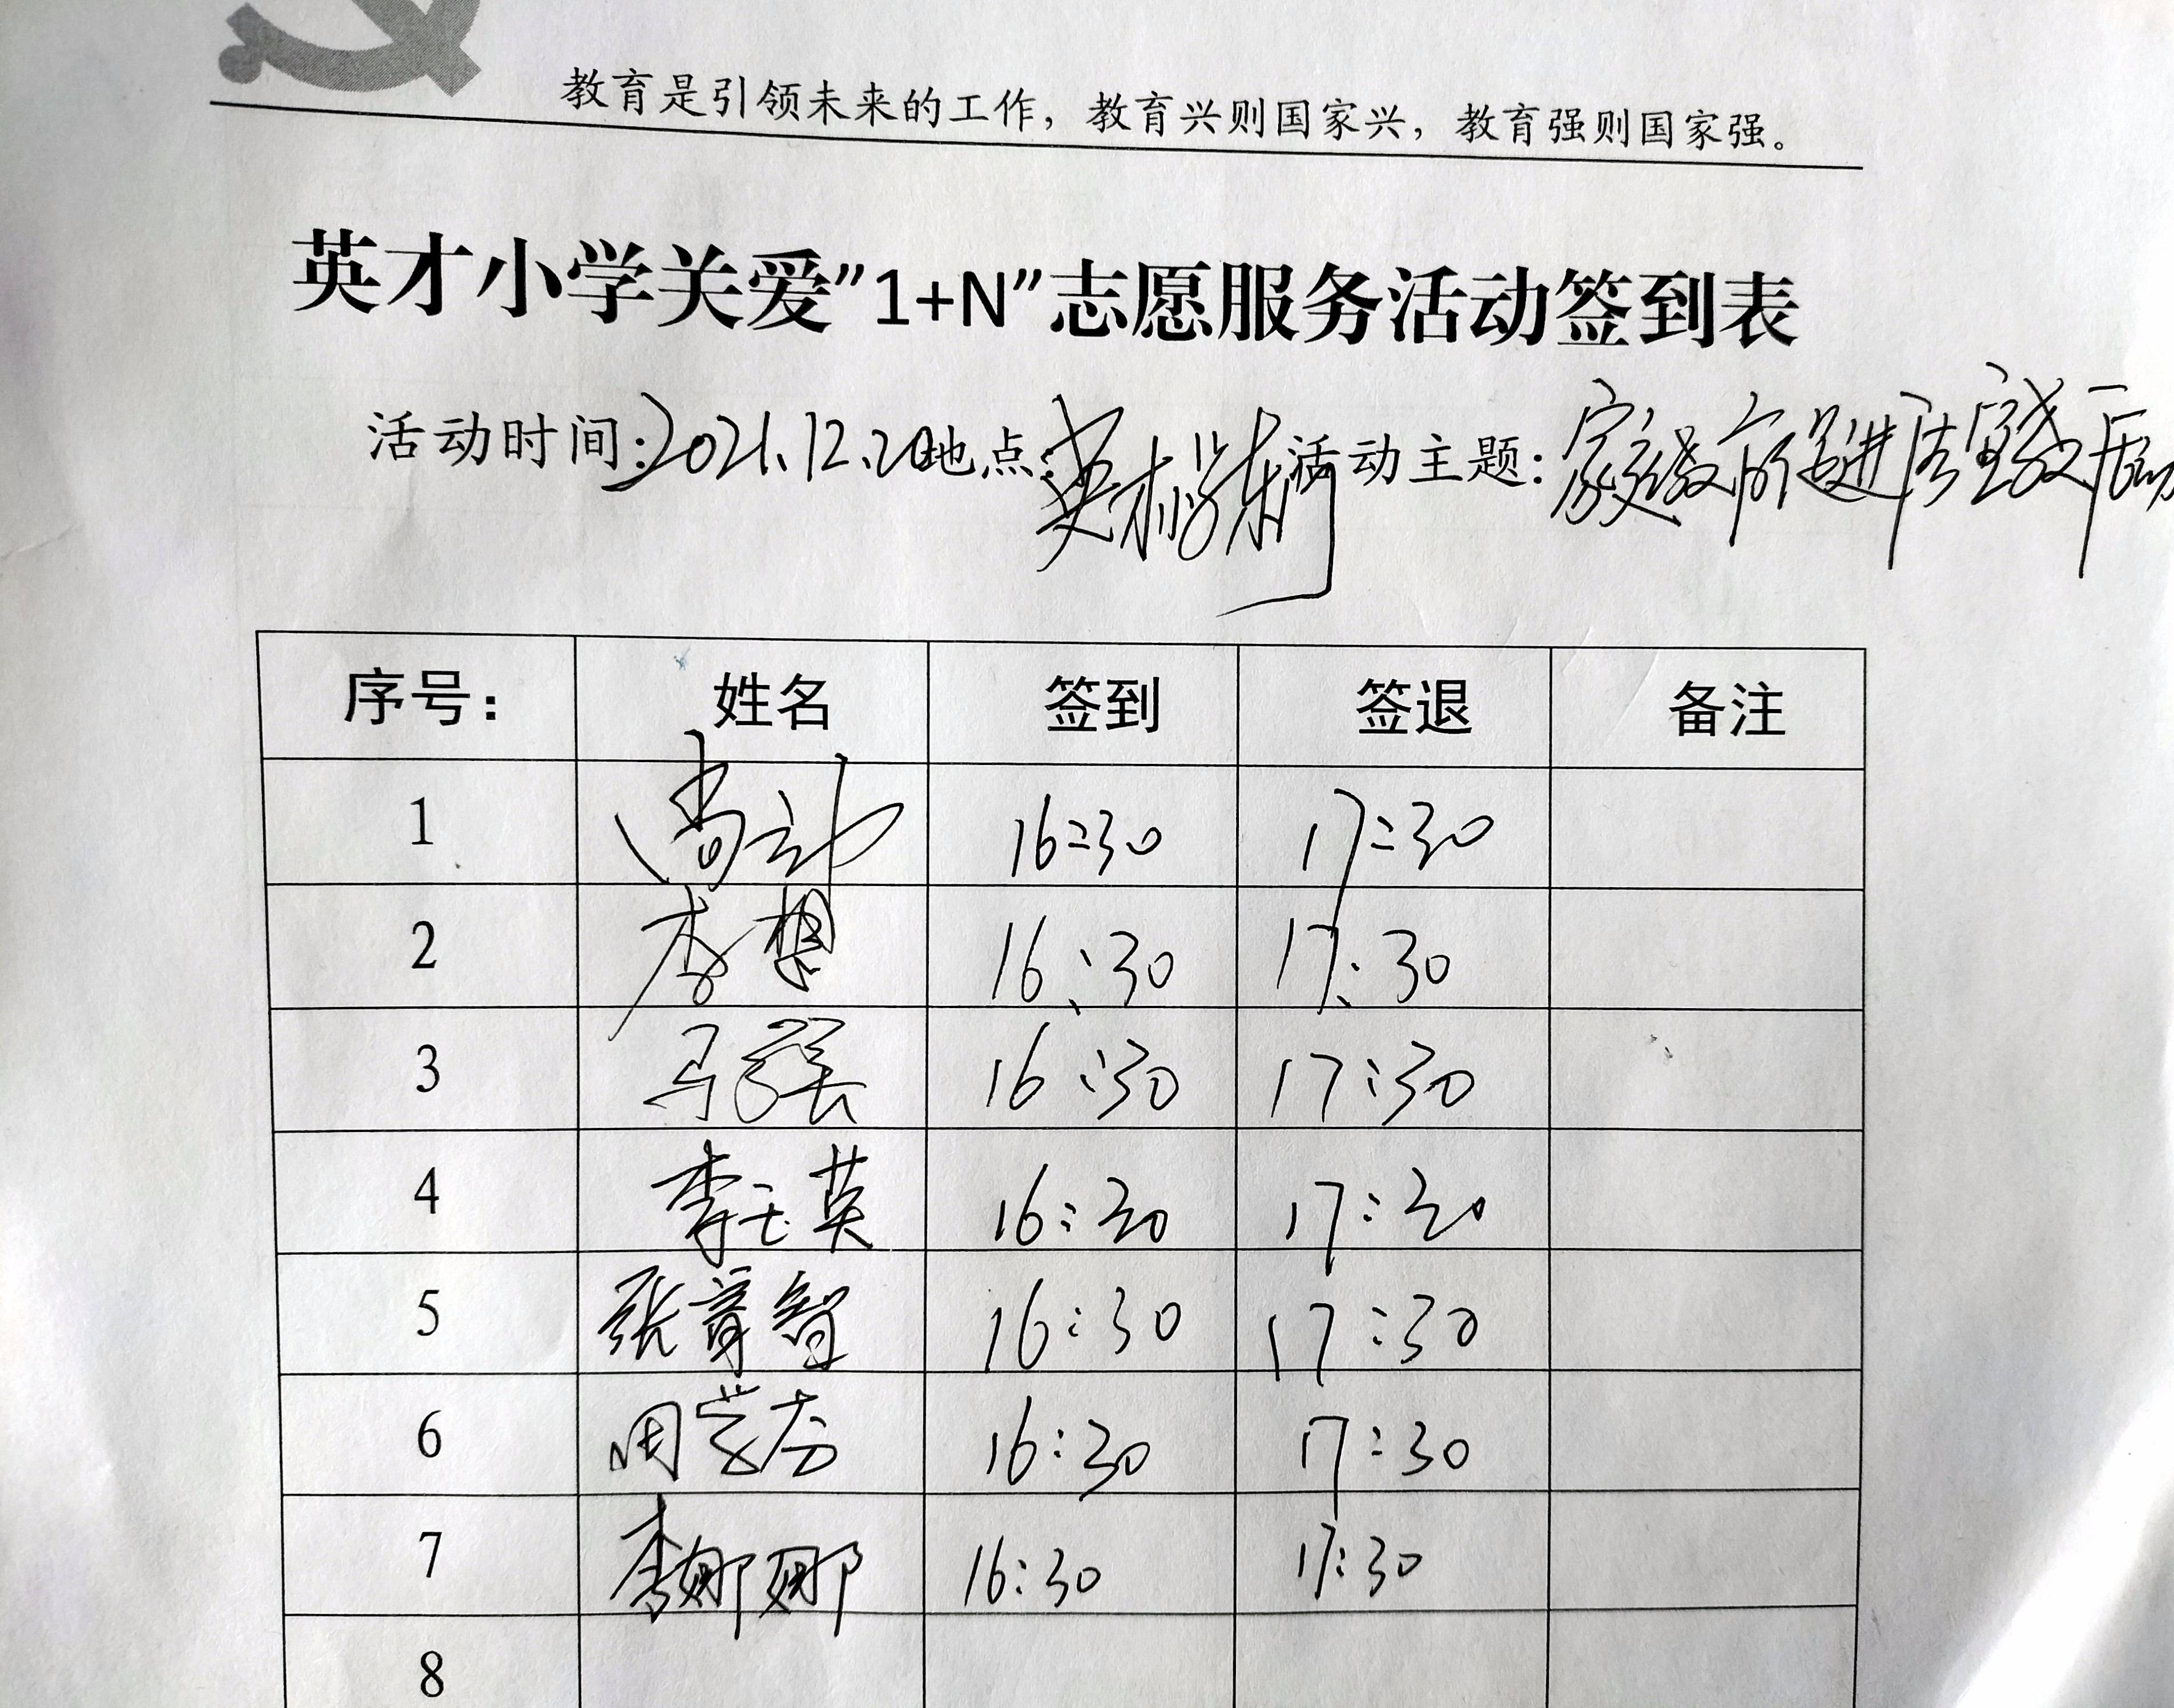 教育是引领未来的工作，教育兴则国家兴，教育强则国家强。
英才小学关爱”1+N”志愿服务活动签到表
活动时间:2021.12.20 地点: 英才 活动主题: 家庭教育促进法宣
序号: 姓名 签到 签退 备注
1 16:30 17:30
2 李想 16:30 17:30
3 马 16:30 17:30
4 李玉英 16:30 17:30
5 张育智 16:30 17:30
6 周学芬 16:30 17:30
7 李娜娜 16:30 17:30
8